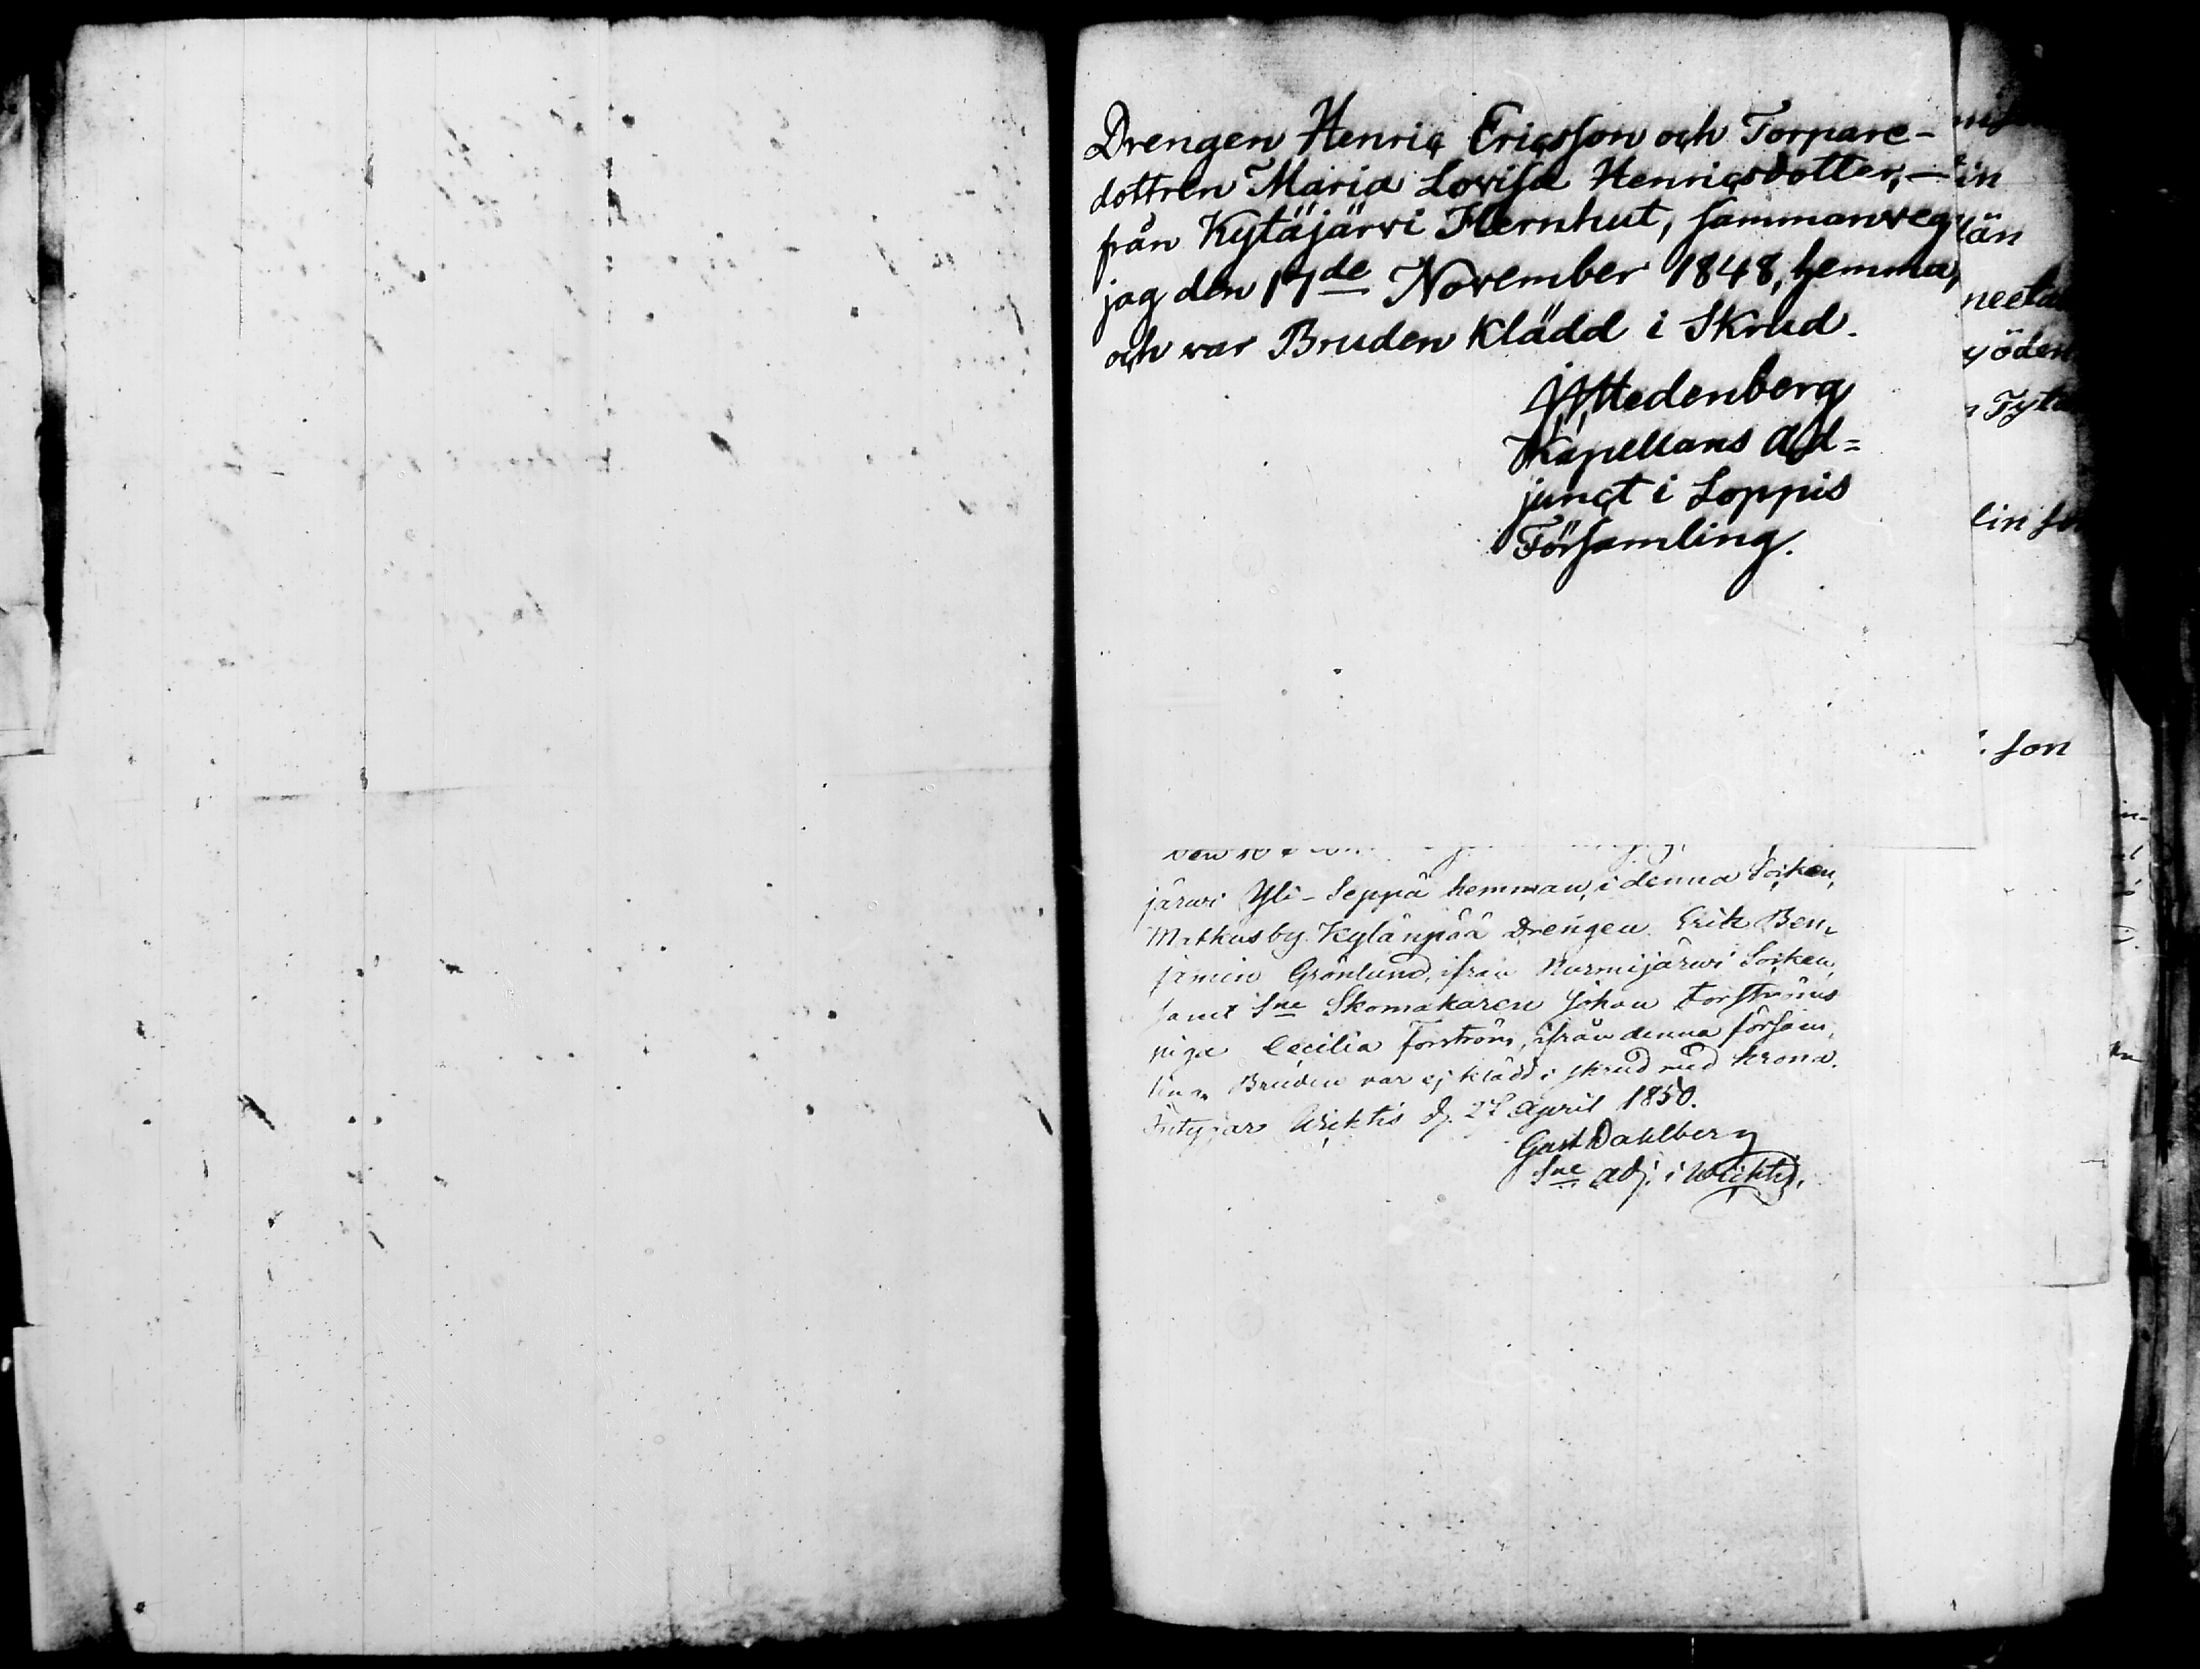 Drengen Henric Ericsson och Torpare-
dottren Maria Lovisa Henricsdotter, —
från Kytäjärvi Hernhut, sammanveg
jag den 17de November 1848, hemma,
och var Bruden klädd i Skrud.
Hedenberg
Kapellans Ad=
junct i Loppis
Församling.
län
yöden
son
järwi Yli-Seppä hemman, i denna Soken,
Matkusby Kylänpää Drengen Erik Ben,
jamin Grönlund, ifrån Nurmijärwi Soken,
samt Sne Skomakaren Johan Forströms
piga Cecilia Forström, ifrån denna försam,
ling. Bruden var ej klädd i skrud med krona.
Intygar Wichtis d. 27 April 1850.
Gust Dahlberg
Sne adj. i Wichtis.